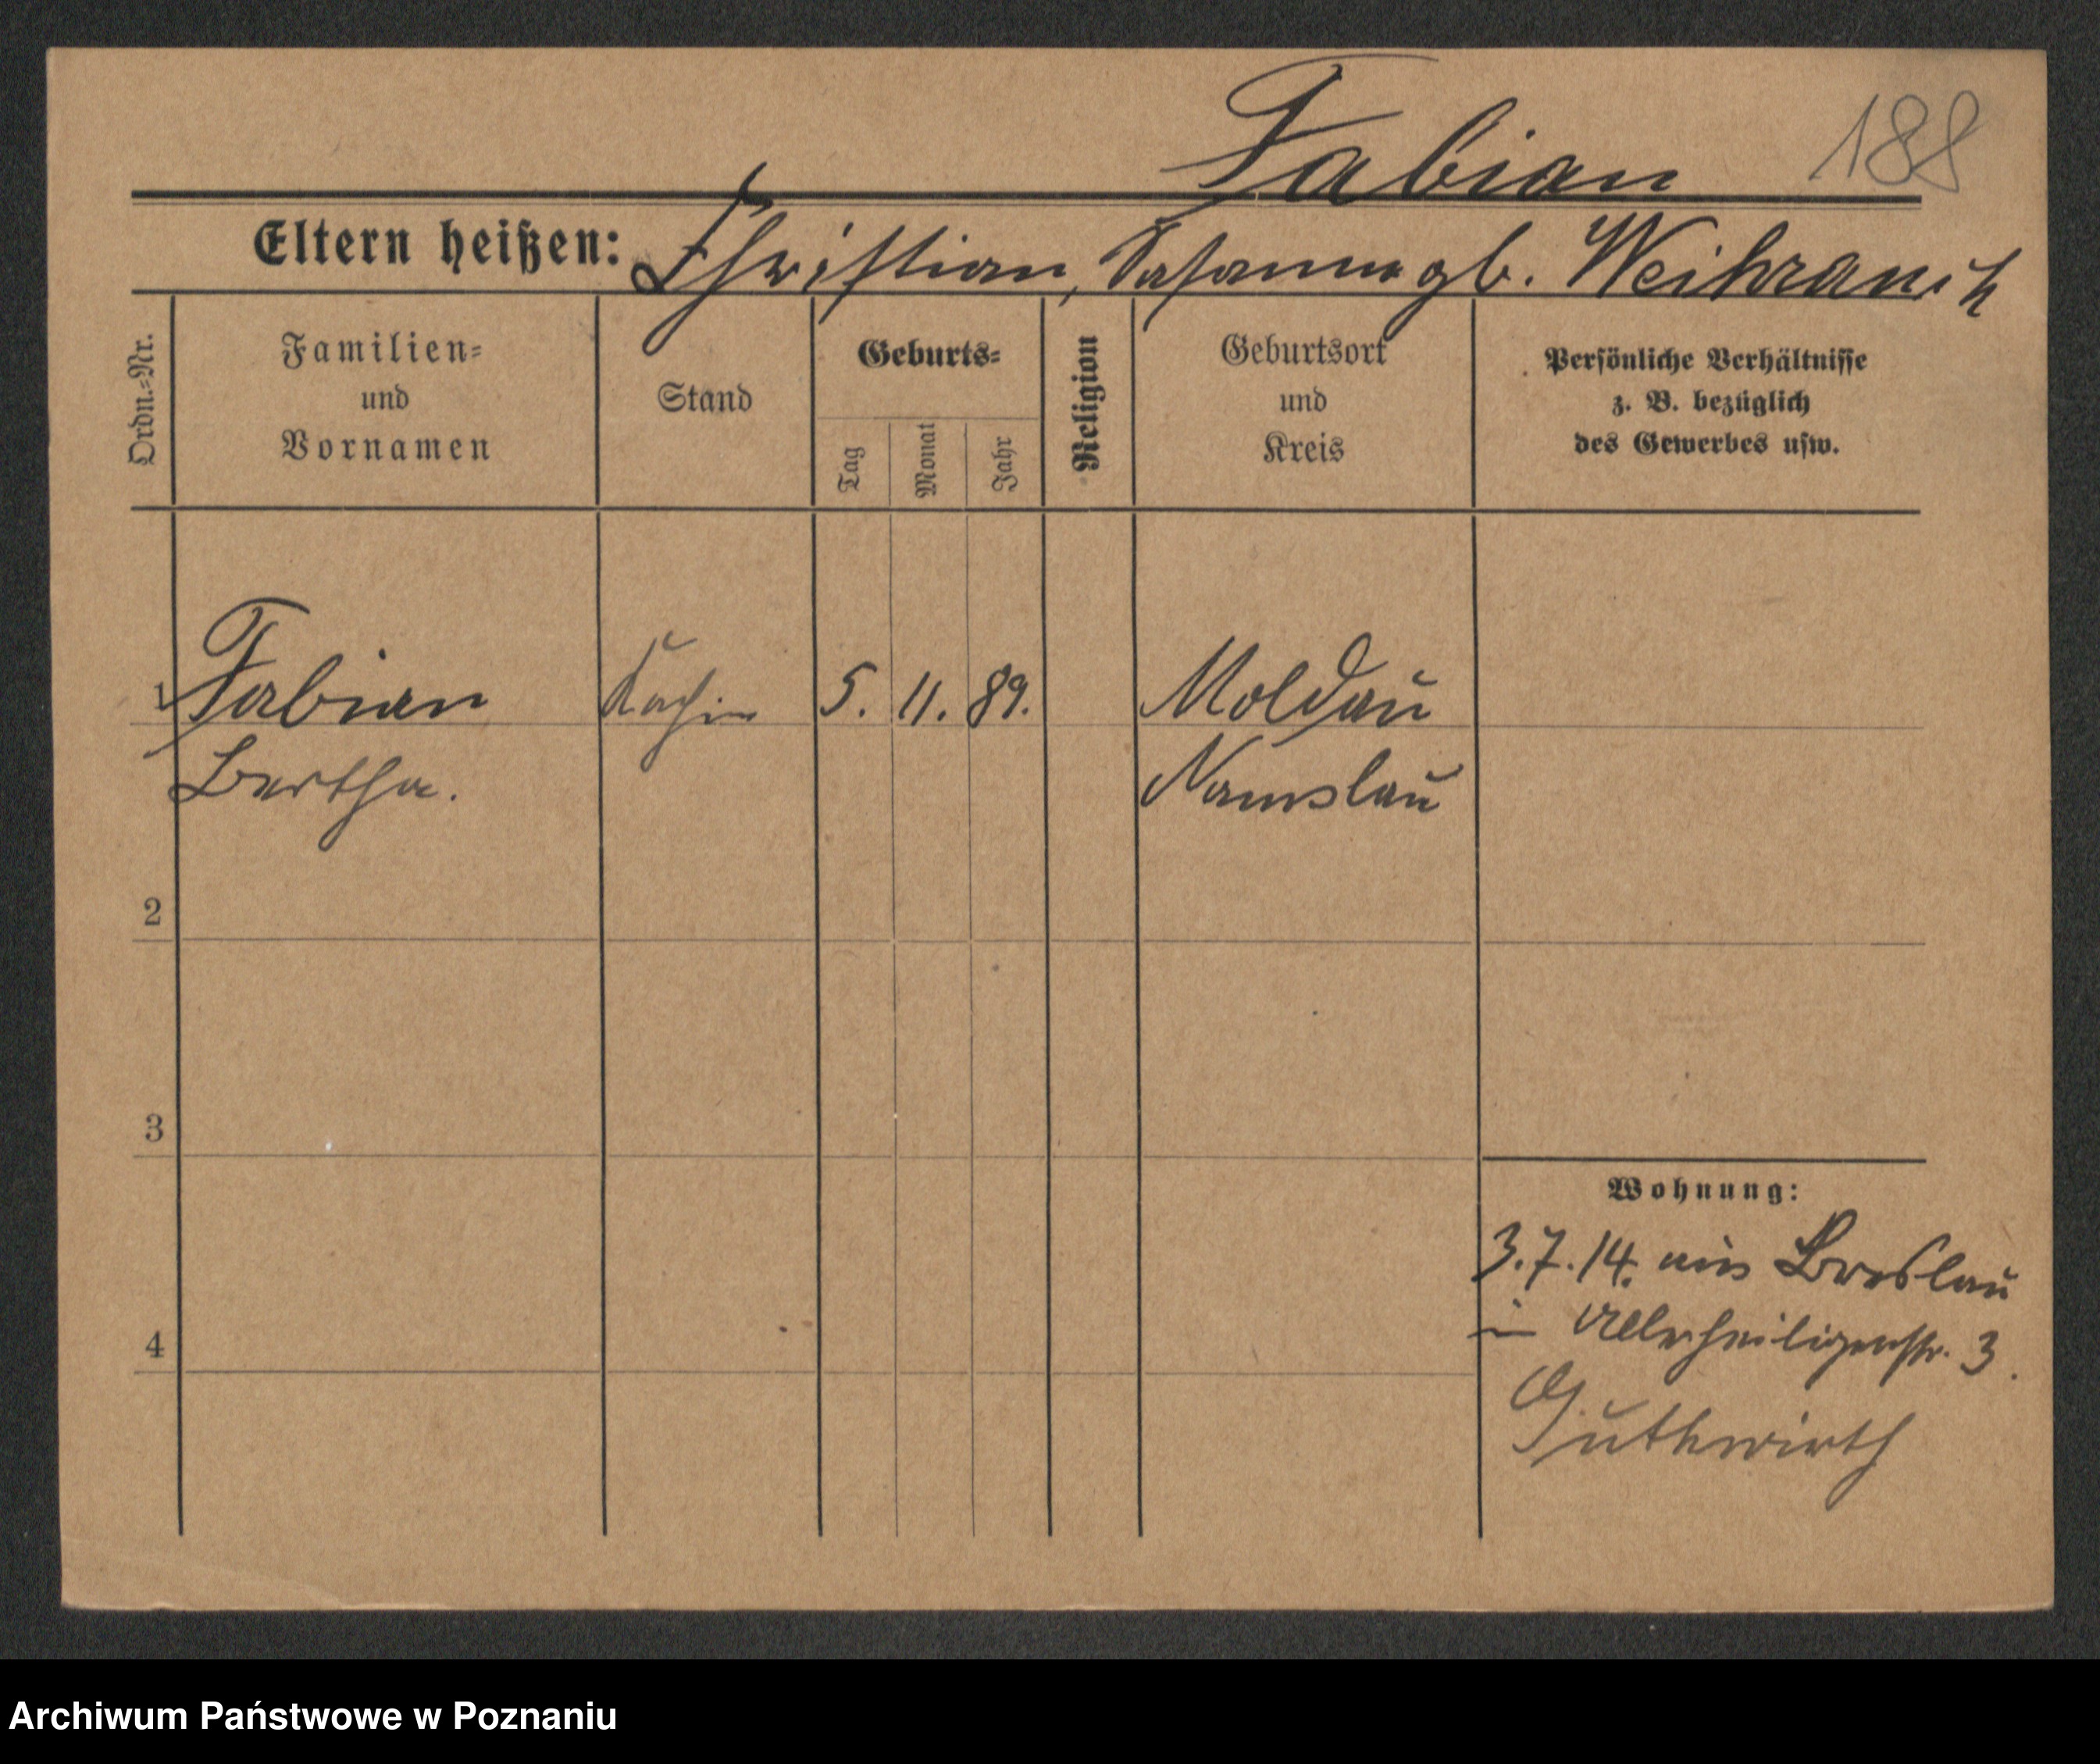 Fabian 188
Eltern heißen: Christian, Susanna gb. Weihrauch
Ordn.=Nr.
Familien=
und
Vornamen
Stand
Geburts=
Tag
Monat
Jahr
Religion
Geburtsort
und
Kreis
Persönliche Verhältnisse
z. B. bezüglich
des Gewerbes usw.
1 Fabian Köchin 5. 11. 89. Moldau
Bertha. Namslau
2
3
4
Wohnung:
3.7.14. aus Breslau
in Allerheiligenstr. 3.
Guthwirth
Archiwum Państwowe w Poznaniu